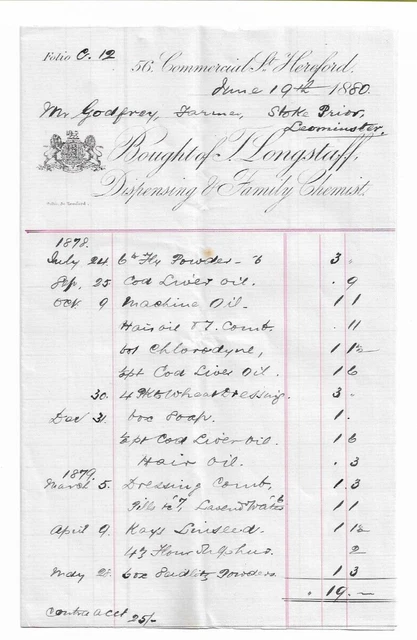 Folio C. 12
56, Commercial St. Hereford,
June 19th 1880
Mr Godfrey, Farmer, Stoke Prior,
Leominster.
Bought of J. Longstaff,
Dispensing & Family Chemist.
1878.
July 24 6 Fly Powder - 6 3 -
Sep. 25 Cod Liver Oil. . 9
Oct 9 Machine Oil. 1 1
Hair oil & T. Comb. . 11
bot Chlorodyne, 1 1½
½pt Cod Liver Oil. 1 6
30. 4 Wheat Dressing. 3 -
Dec 31 Soap. 1 .
½pt Cod Liver Oil. 1 6
Hair Oil. . 3
1879.
March 5. Dressing Comb, 1 3
Pills Lavend Water 1 1
April 9. Kays Linseed. 1 1½
Flour Sulphur. 2
May 28 Seidlitz Powders 1 3
. 19 . -
Contra acct 25/-